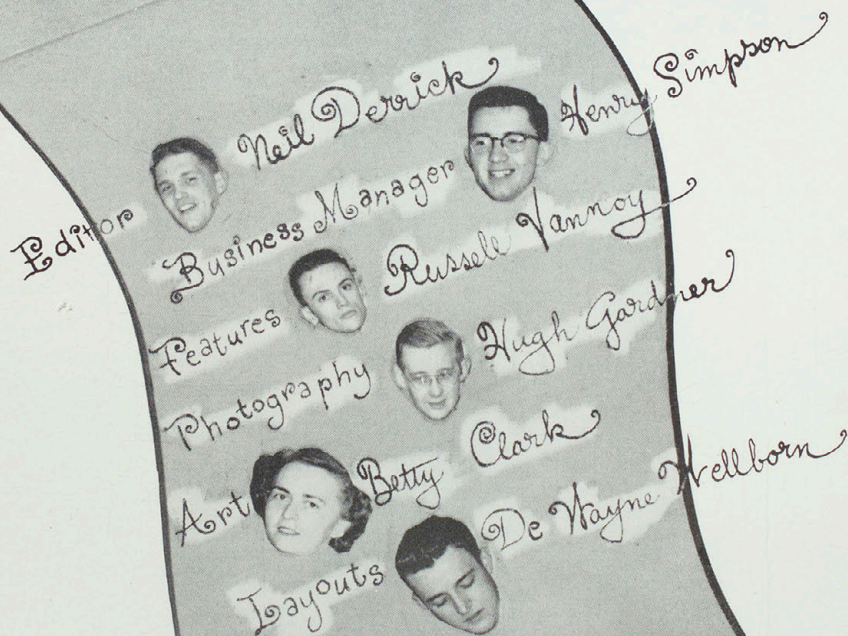 Editor Neil Derrick
Business Manager Henry Simpson
Features Russell Vannoy
Photography Hugh Gardner
Art Betty Clark
Layouts De Wayne Wellborn